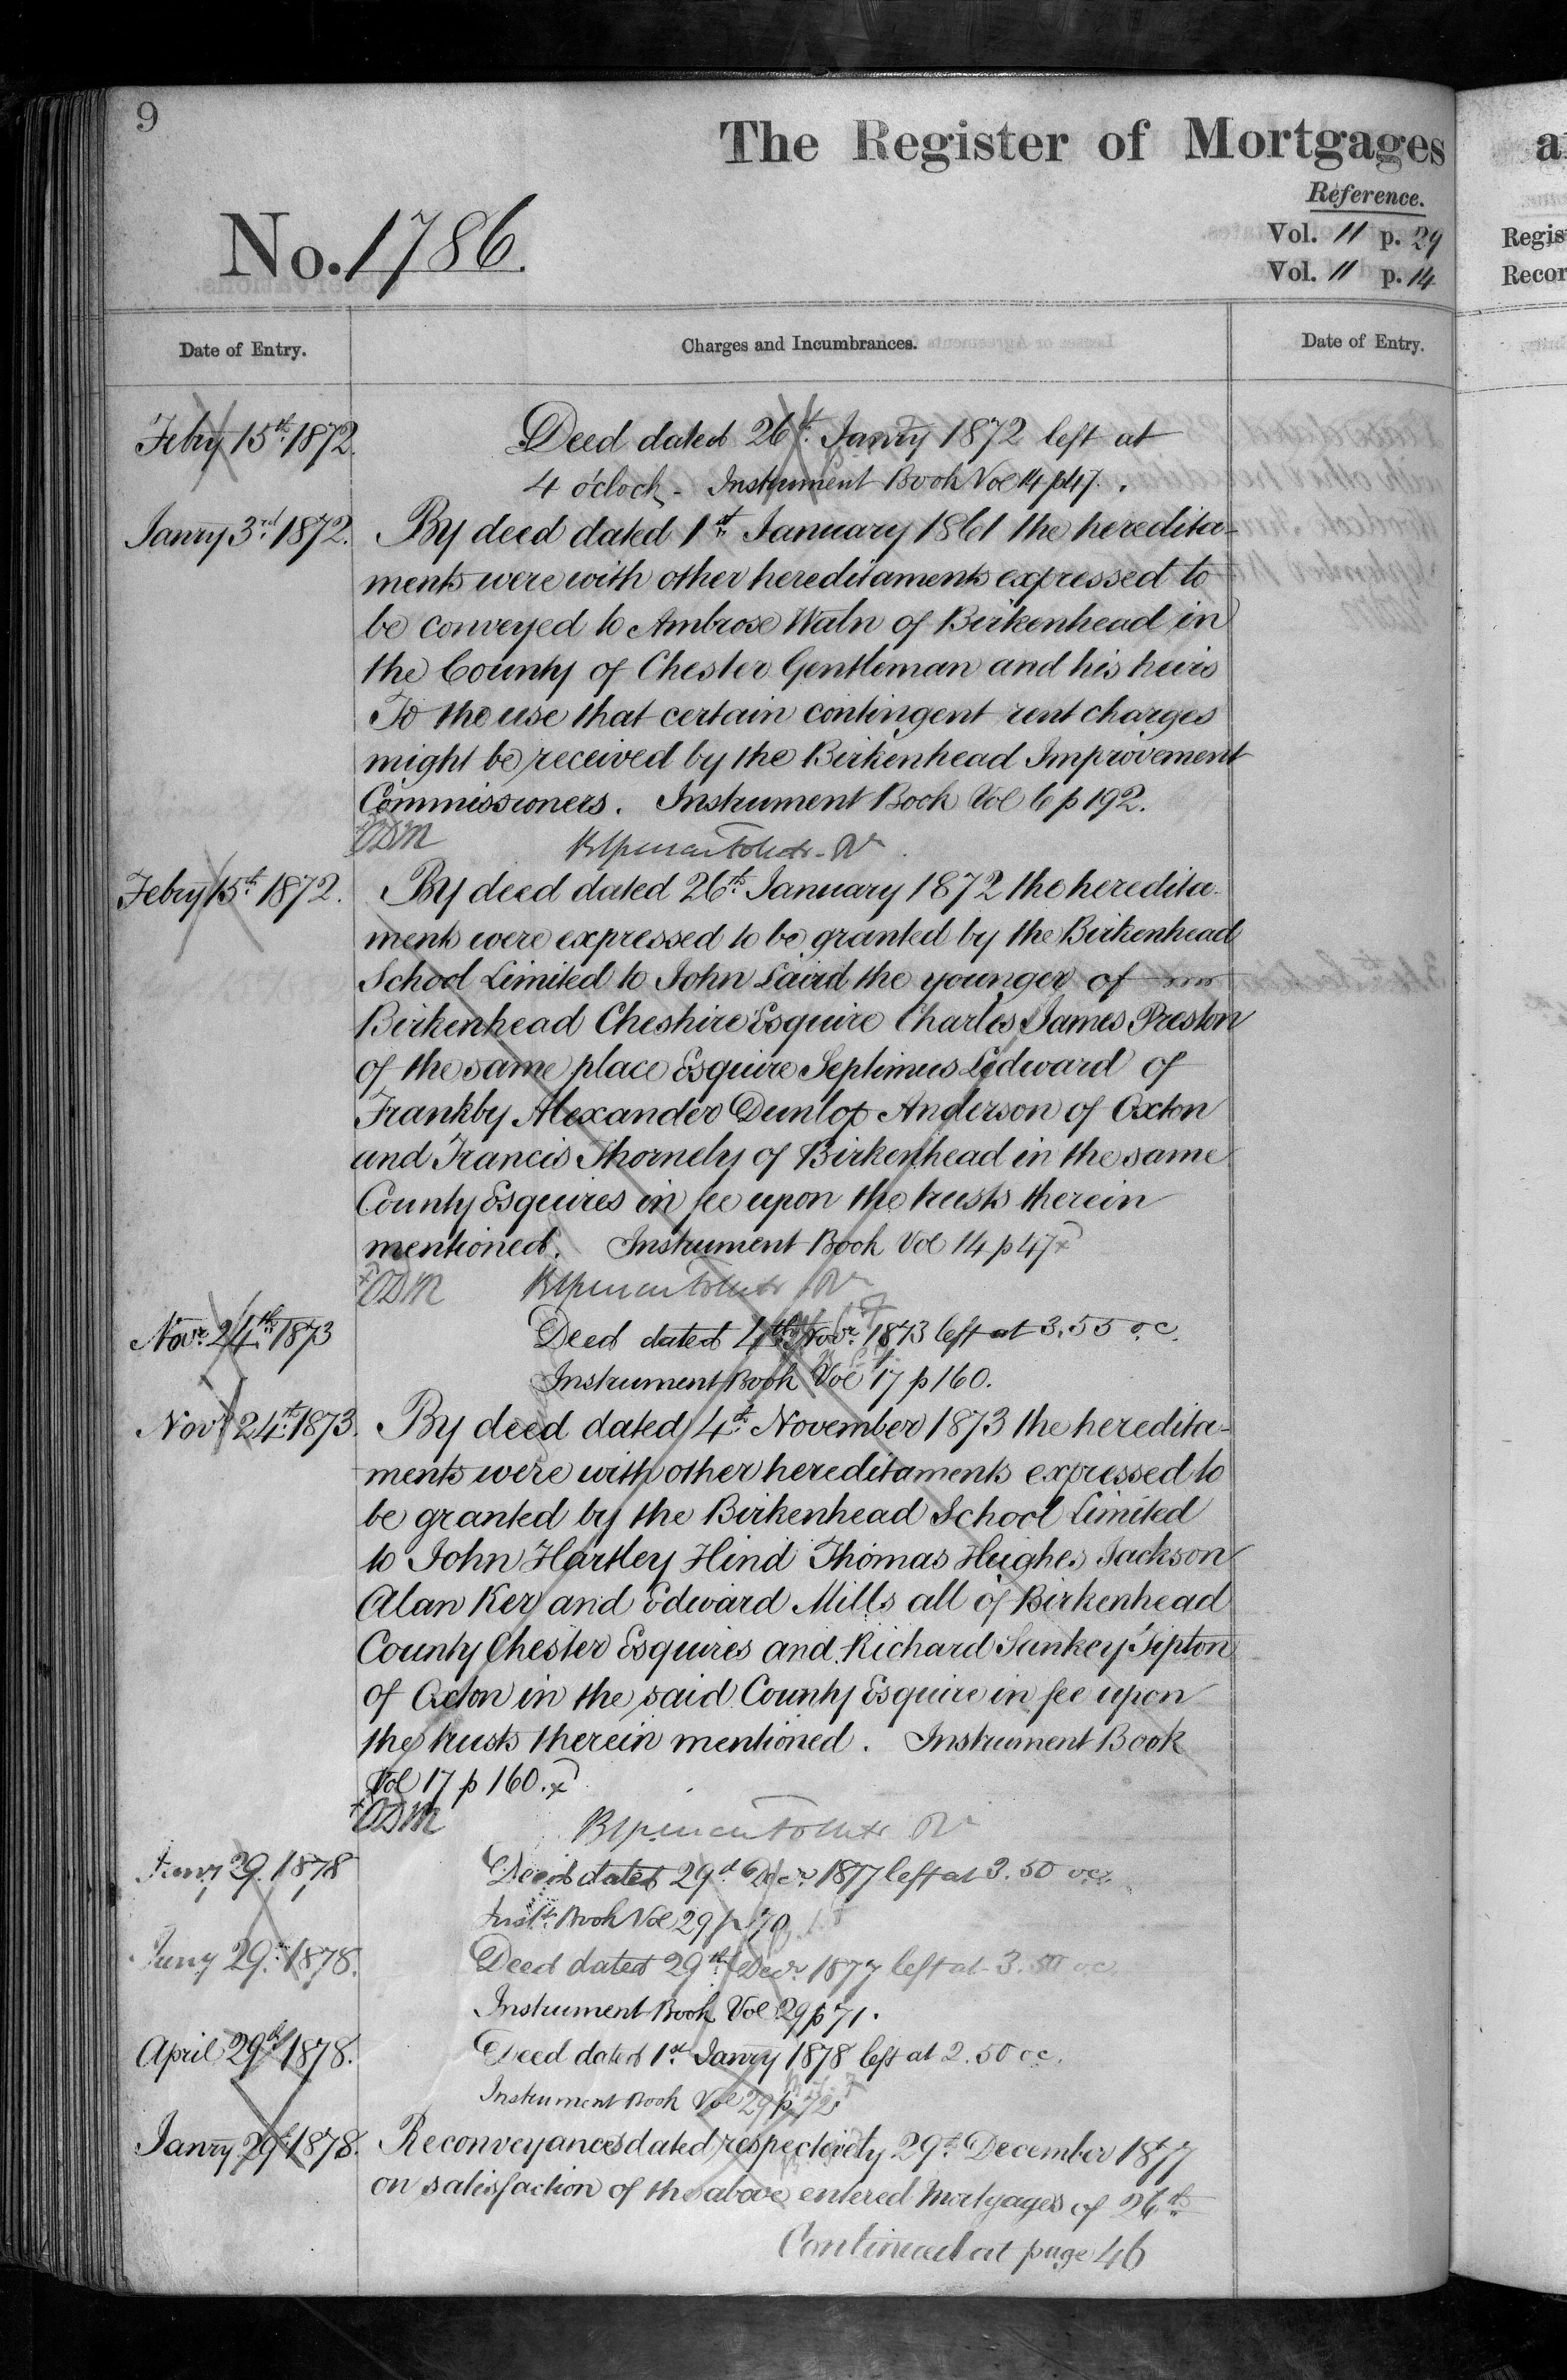 9
The Register of Mortgages
Reference.
No. 1786.
Vol. 11 p. 29
Vol. 11 p. 14
Date of Entry.
Charges and Incumbrances.
Date of Entry.
Febry 15th 1872.
Deed dated 26th Janry 1872 left at
4 o'clock - Instrument Book Vol 14 p 47.
Janry 3rd 1872.
By deed dated 1st January 1861 the heredita-
ments were with other hereditaments expressed to
be conveyed to Ambrose Waln of Birkenhead in
the County of Chester Gentleman and his heirs
To the use that certain contingent rent charges
might be received by the Birkenhead Improvement
Commissioners. Instrument Book Vol 6 p 192.
Febry 15th 1872.
By deed dated 26th January 1872 the heredita-
ments were expressed to be granted by the Birkenhead
School Limited to John Laird the younger of
Birkenhead Cheshire Esquire Charles James Preston
of the same place Esquire Septimus Ledward of
Frankby Alexander Dunlop Anderson of Oxton
and Francis Thornely of Birkenhead in the same
County Esquires in fee upon the trusts therein
mentioned. Instrument Book Vol 14 p 47
Novr 24th 1873
Deed dated 4th Novr 1873 left at 3.55 o.c.
Instrument Book Vol 17 p 160.
Novr 24th 1873.
By deed dated 4th November 1873 the heredita-
ments were with other hereditaments expressed to
be granted by the Birkenhead School Limited
to John Hartley Hind Thomas Hughes Jackson
Alan Ker and Edward Mills all of Birkenhead
County Chester Esquires and Richard Sankey Tipton
of Oxton in the said County Esquire in fee upon
the trusts therein mentioned. Instrument Book
Vol 17 p 160.
29. 1878
Deed dated 29th Decr 1877 left at 3.50 o.c.
Inst. Book Vol 29 p 70
29th 1878.
Deed dated 29th Decr 1877 left at 3.50 o.c.
Instrument Book Vol 29 p 71.
April 29th 1878.
Deed dated 1st Janry 1878 left at 2.50 o.c.
Instrument Book Vol 29 p 72
Janry 29th 1878.
Reconveyances dated respectively 29th December 1877
on satisfaction of the above entered Mortgages of 26th
Continued at page 46
a
Regis
Recor